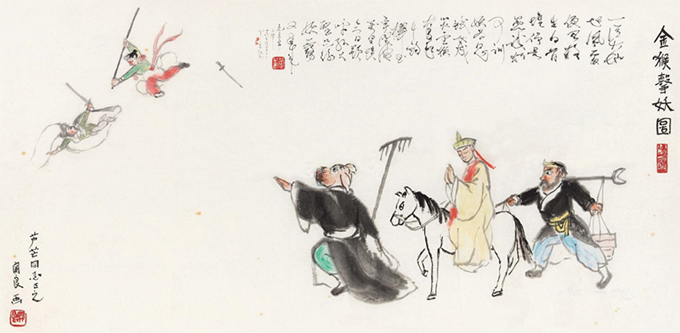 金猴擊妖圖
一從大地
起風雷
便有精
生白骨
堆僧是
愚氓猶
可訓
妖為鬼
蜮必成
災金猴
奮起
千鈞棒
玉宇
澄清
萬里埃
今日歡
呼孫大
聖只緣
妖霧
又重來
芦芒同志正之
関良画